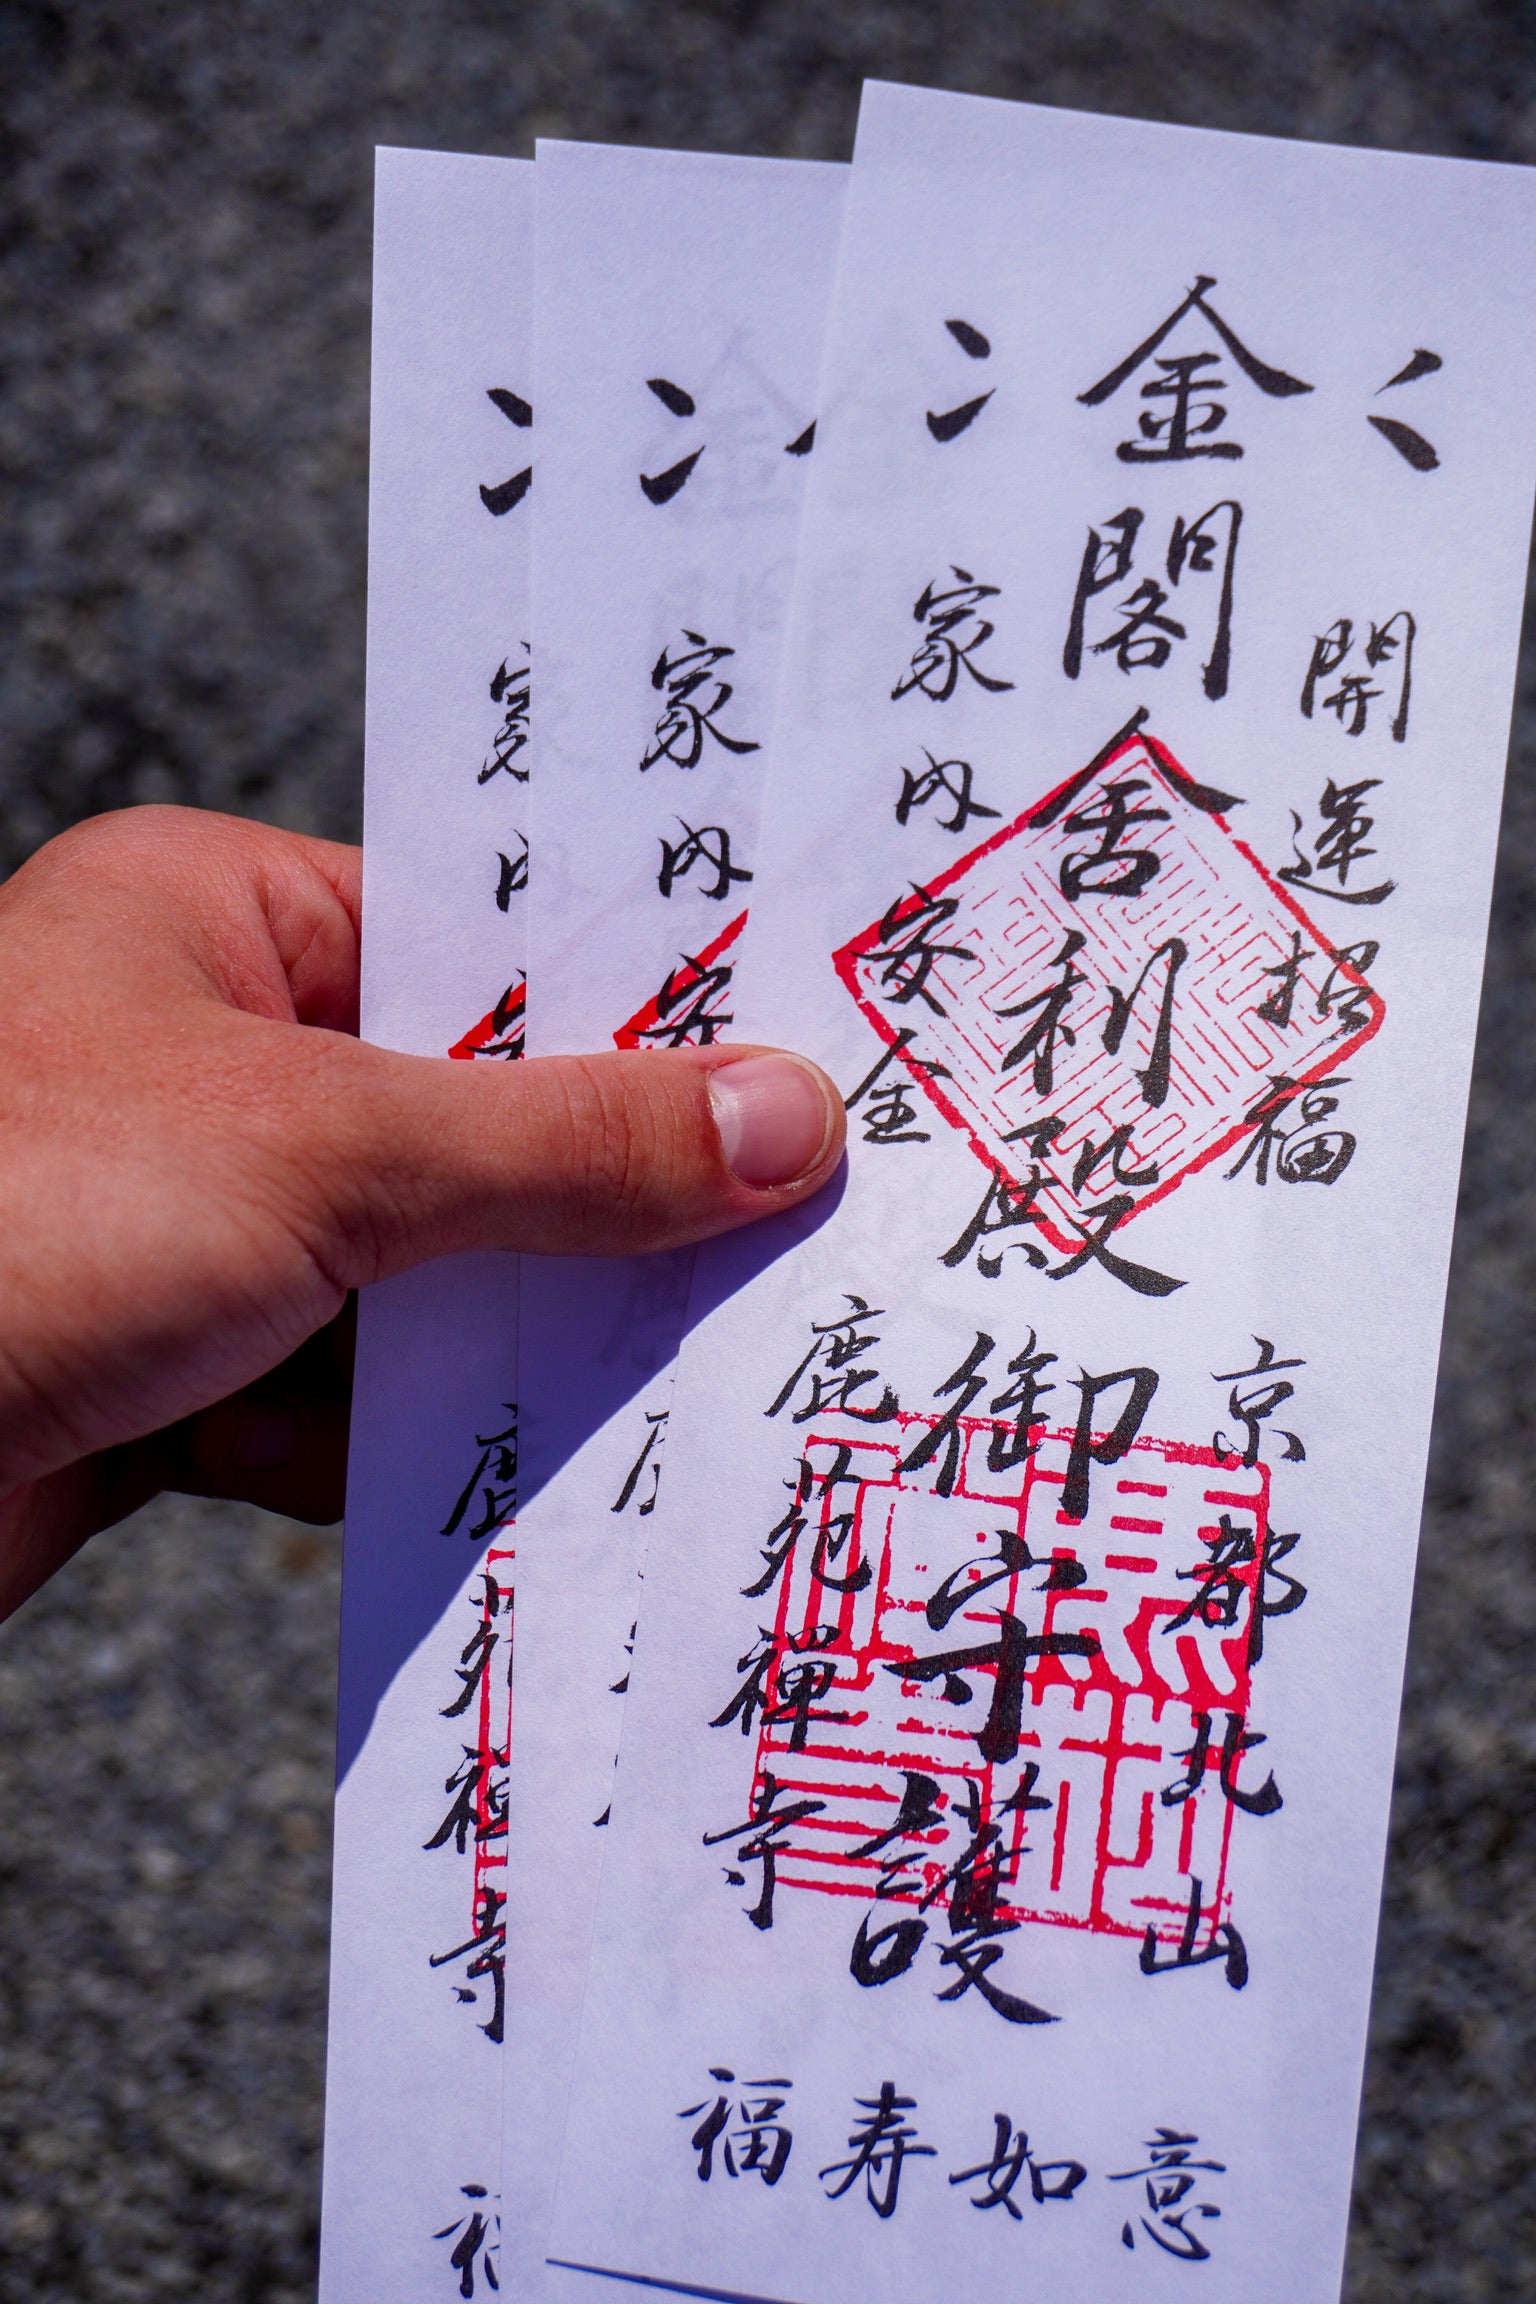 開運招福
京都北山
金閣舎利殿御守護
家内安全
鹿苑禅寺
福寿如意
家内安
家内安
鹿苑禅寺